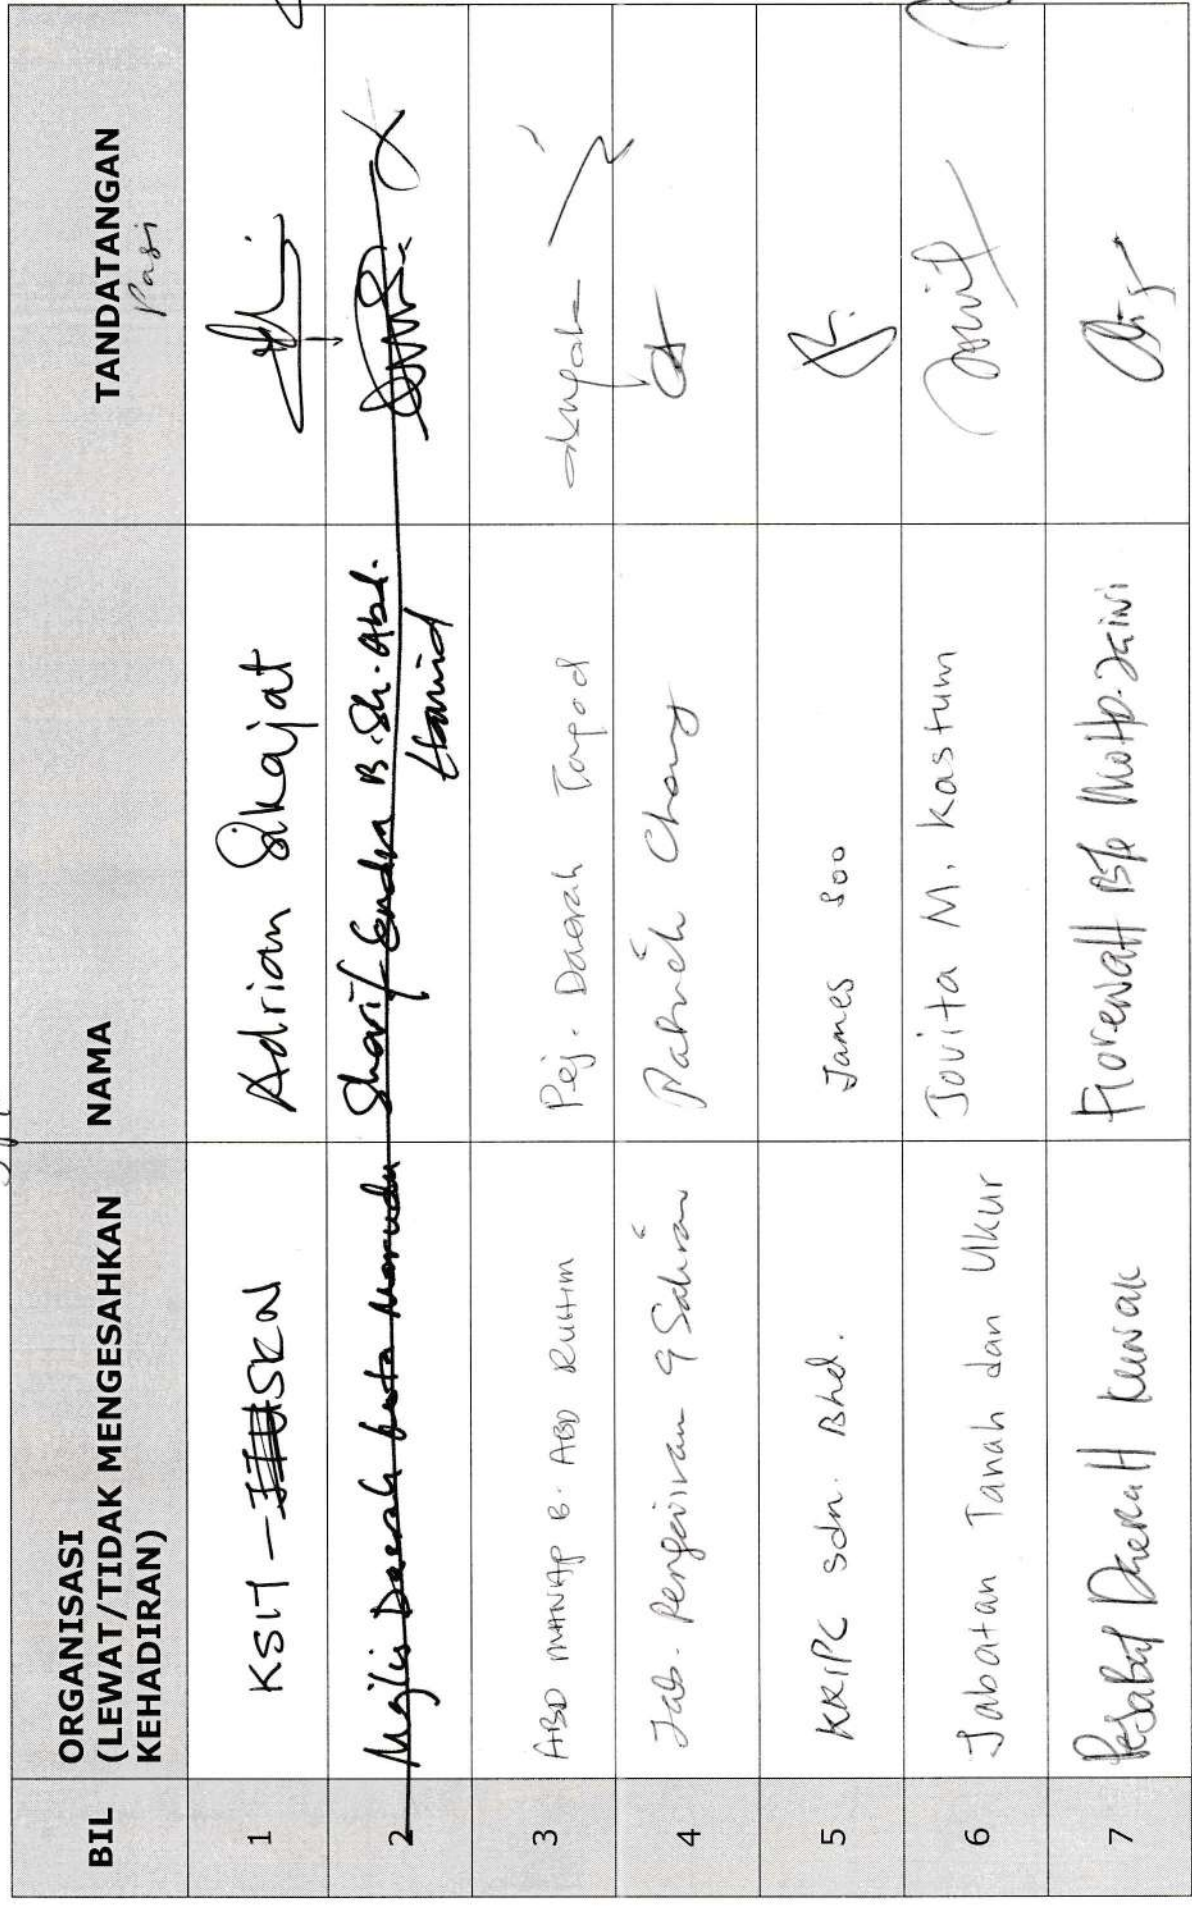 BIL
ORGANISASI
(LEWAT/TIDAK MENGESAHKAN
KEHADIRAN)
NAMA
TANDATANGAN
Pagi
1
KSIT - SKN
Adrian Sikajat
2
Majlis Daerah Kota Marudu
Sharif Endra B. Sh. Abd.
Hamid
3
ABD MANAP B. ABD RUHIM
Pej. Daerah Tongod
4
Jab. Pengairan & Saliran
Patrick Chong
5
KKIPC Sdn. Bhd.
James Soo
6
Jabatan Tanah dan Ukur
Jovita M. Kastum
7
Pejabat Daerah Kunak
Bte Mohd. Jaini